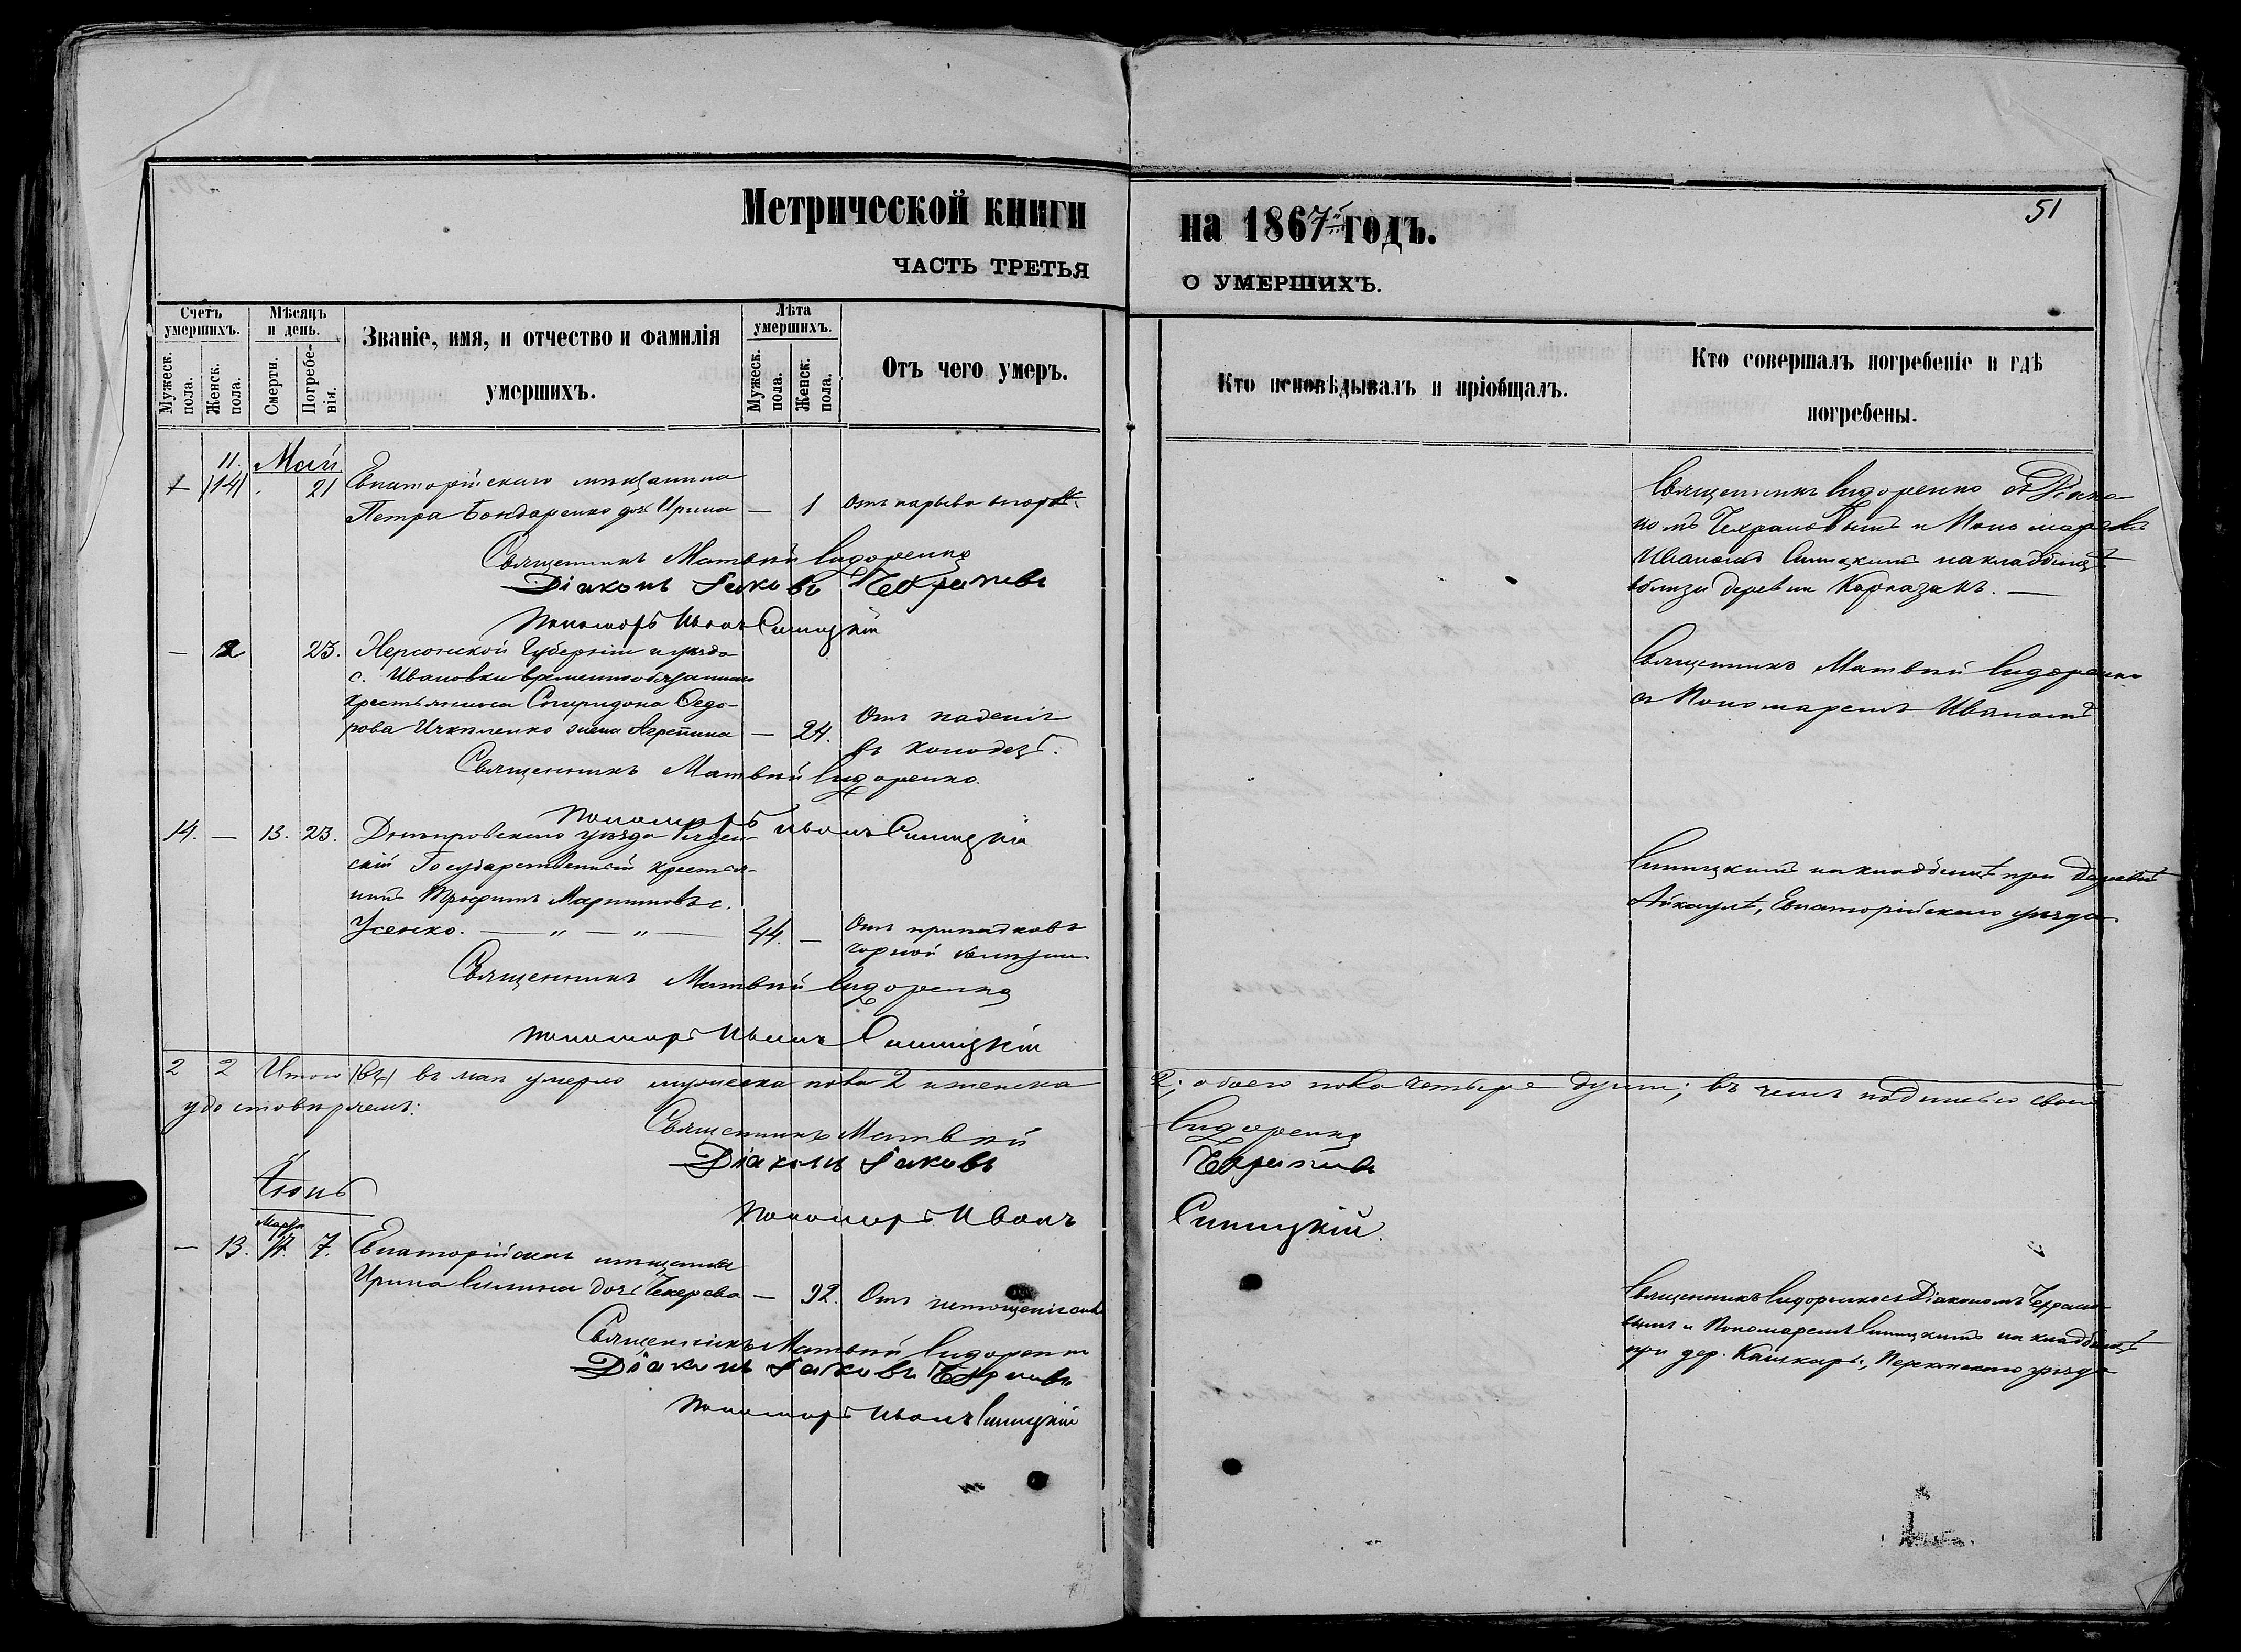 Метрической книги
ЧАСТЬ ТРЕТЬЯ
на 1867й годъ.
О УМЕРШИХЪ.
51
Счетъ умершихъ.
Мужеск. пола.
Женск. пола.
Мѣсяцъ и день.
Смерти.
Погребенія.
Званіе, имя, и отчество и фамилія
умершихъ.
Лѣта умершихъ.
Мужеск. пола.
Женск. пола.
Отъ чего умеръ.
Кто исповѣдывалъ и пріобщалъ.
Кто совершалъ погребеніе и гдѣ
погребены.
11. Май
21 Евпаторійскаго мѣщанина
Петра Бондаренко дочь Ирина — 1 Отъ нарыва въ горлѣ.
Священникъ Матвѣй Сидоренко
Діаконъ Іаковъ
Пономарь Иванъ Синицкій
Священникъ Сидоренко съ Діако-
номъ и Пономаремъ
Иваномъ Синицкимъ на кладбищѣ
вблизи деревни
— 12 23. Херсонской Губерніи и уѣзда
с. Ивановки временнообязаннаго
крестьянина Спиридона Ѳедо-
рова жена Агрепина — 24. Отъ паденія
въ колодезь.
Священникъ Матвѣй Сидоренко.
Пономарь Иванъ Синицкій
Священникъ Матвѣй Сидоренко
съ Пономаремъ Иваномъ
14. — 13. 23. Днѣпровскаго уѣзда
скій Государственный крестья-
нинъ Трофимъ Мартиновъ с.
Усенко. — „ — „ — 44. — Отъ припадковъ
чорной болѣзни
Священникъ Матвѣй Сидоренко
Пономарь Иванъ Синицкій
Синицкимъ на кладбищѣ при деревнѣ
Айкаулѣ, Евпаторійскаго уѣзда
2 2 Итого въ маѣ умерло мужеска пола 2 и женска
2; обоего пола четыре души; въ чемъ подписью своей
удостовѣряемъ:
Священникъ Матвѣй Сидоренко
Діаконъ Іаковъ
Пономарь Иванъ Синицкій
Іюнь
— 13. 7. Евпаторійская мѣщанка
Ирина дочь — 92. Отъ истощенія силъ
Священникъ Матвѣй Сидоренко
Діаконъ Іаковъ
Пономарь Иванъ Синицкій
Священникъ Сидоренко съ Діакономъ
и Пономаремъ Синицкимъ на кладбищѣ
при дер. Перекопскаго уѣзда